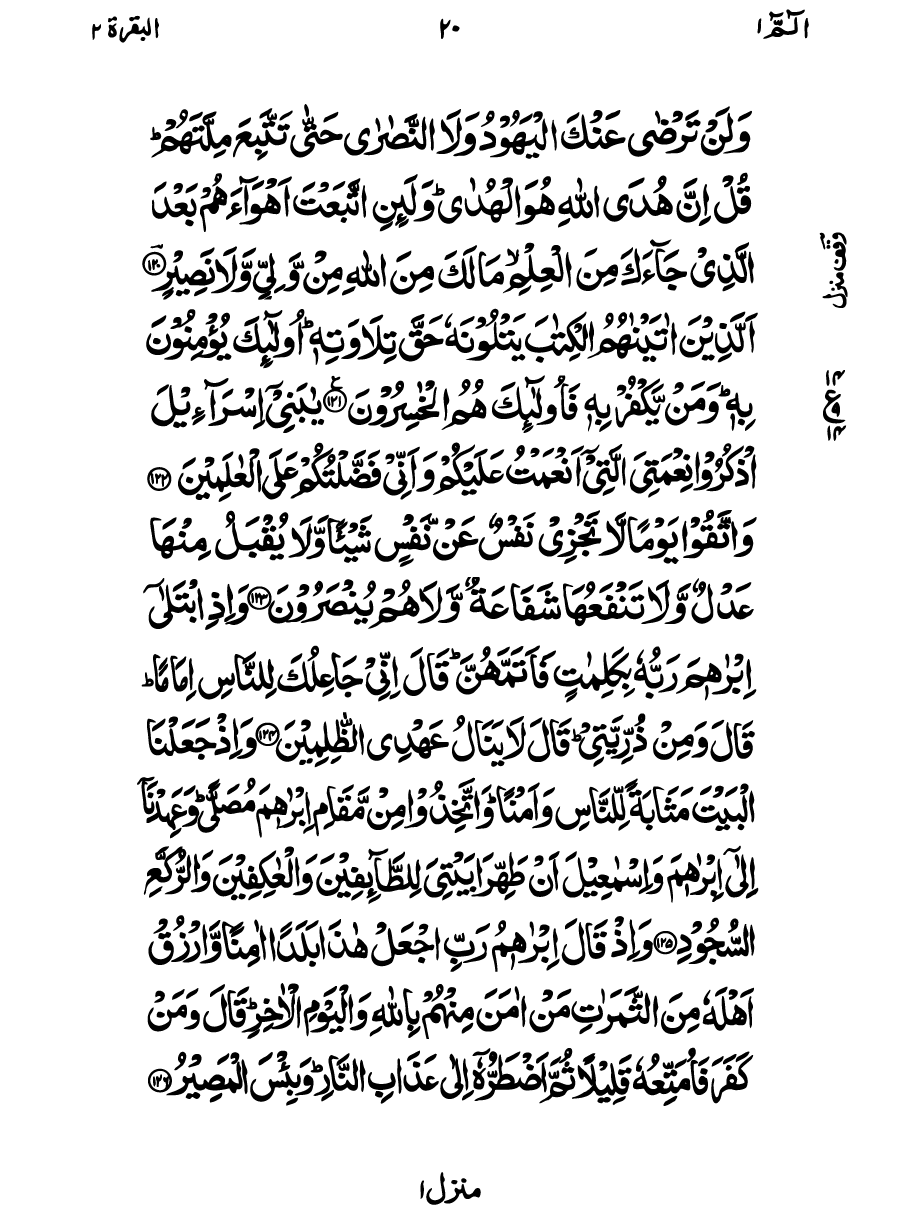 الٓمّٓ ١
٢٠
البقرة ٢
وَلَنْ تَرْضٰى عَنْكَ الْيَهُوْدُ وَلَا النَّصٰرٰى حَتّٰى تَتَّبِعَ مِلَّتَهُمْ ؕ
قُلْ اِنَّ هُدَى اللهِ هُوَ الْهُدٰى ؕ وَلَئِنِ اتَّبَعْتَ اَهْوَآءَهُمْ بَعْدَ
الَّذِىْ جَآءَكَ مِنَ الْعِلْمِ ۙ مَا لَكَ مِنَ اللهِ مِنْ وَّلِيٍّ وَّلَا نَصِيْرٍ ؔ ﴿١٢٠﴾
وقف منزل
اَلَّذِيْنَ اٰتَيْنٰهُمُ الْكِتٰبَ يَتْلُوْنَهٗ حَقَّ تِلَاوَتِهٖ ؕ اُولٰٓئِكَ يُؤْمِنُوْنَ
بِهٖ ؕ وَمَنْ يَّكْفُرْ بِهٖ فَاُولٰٓئِكَ هُمُ الْخٰسِرُوْنَ ﴿١٢١﴾ ع يٰبَنِىْٓ اِسْرَآءِيْلَ
١٤
ع
١٤
اذْكُرُوْا نِعْمَتِىَ الَّتِىْٓ اَنْعَمْتُ عَلَيْكُمْ وَاَنِّىْ فَضَّلْتُكُمْ عَلَى الْعٰلَمِيْنَ ﴿١٢٢﴾
وَاتَّقُوْا يَوْمًا لَّا تَجْزِىْ نَفْسٌ عَنْ نَّفْسٍ شَيْـًٔا وَّلَا يُقْبَلُ مِنْهَا
عَدْلٌ وَّلَا تَنْفَعُهَا شَفَاعَةٌ وَّلَا هُمْ يُنْصَرُوْنَ ﴿١٢٣﴾ وَاِذِ ابْتَلٰٓى
اِبْرٰهٖمَ رَبُّهٗ بِكَلِمٰتٍ فَاَتَمَّهُنَّ ؕ قَالَ اِنِّىْ جَاعِلُكَ لِلنَّاسِ اِمَامًا ؕ
قَالَ وَمِنْ ذُرِّيَّتِىْ ؕ قَالَ لَا يَنَالُ عَهْدِى الظّٰلِمِيْنَ ﴿١٢٤﴾ وَاِذْ جَعَلْنَا
الْبَيْتَ مَثَابَةً لِّلنَّاسِ وَاَمْنًا ؕ وَاتَّخِذُوْا مِنْ مَّقَامِ اِبْرٰهٖمَ مُصَلًّى ؕ وَعَهِدْنَآ
اِلٰٓى اِبْرٰهٖمَ وَاِسْمٰعِيْلَ اَنْ طَهِّرَا بَيْتِىَ لِلطَّآئِفِيْنَ وَالْعٰكِفِيْنَ وَالرُّكَّعِ
السُّجُوْدِ ﴿١٢٥﴾ وَاِذْ قَالَ اِبْرٰهٖمُ رَبِّ اجْعَلْ هٰذَا بَلَدًا اٰمِنًا وَّارْزُقْ
اَهْلَهٗ مِنَ الثَّمَرٰتِ مَنْ اٰمَنَ مِنْهُمْ بِاللهِ وَالْيَوْمِ الْاٰخِرِ ؕ قَالَ وَمَنْ
كَفَرَ فَاُمَتِّعُهٗ قَلِيْلًا ثُمَّ اَضْطَرُّهٗٓ اِلٰى عَذَابِ النَّارِ ؕ وَبِئْسَ الْمَصِيْرُ ﴿١٢٦﴾
منزل ١